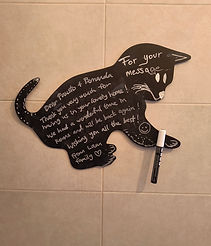 For your
message
Dear Prousto + Bermuda
Thank you very much for
having us in your lovely home!
We had a wonderful time in
and will be back again!
Wishing you all the best!
family ♡